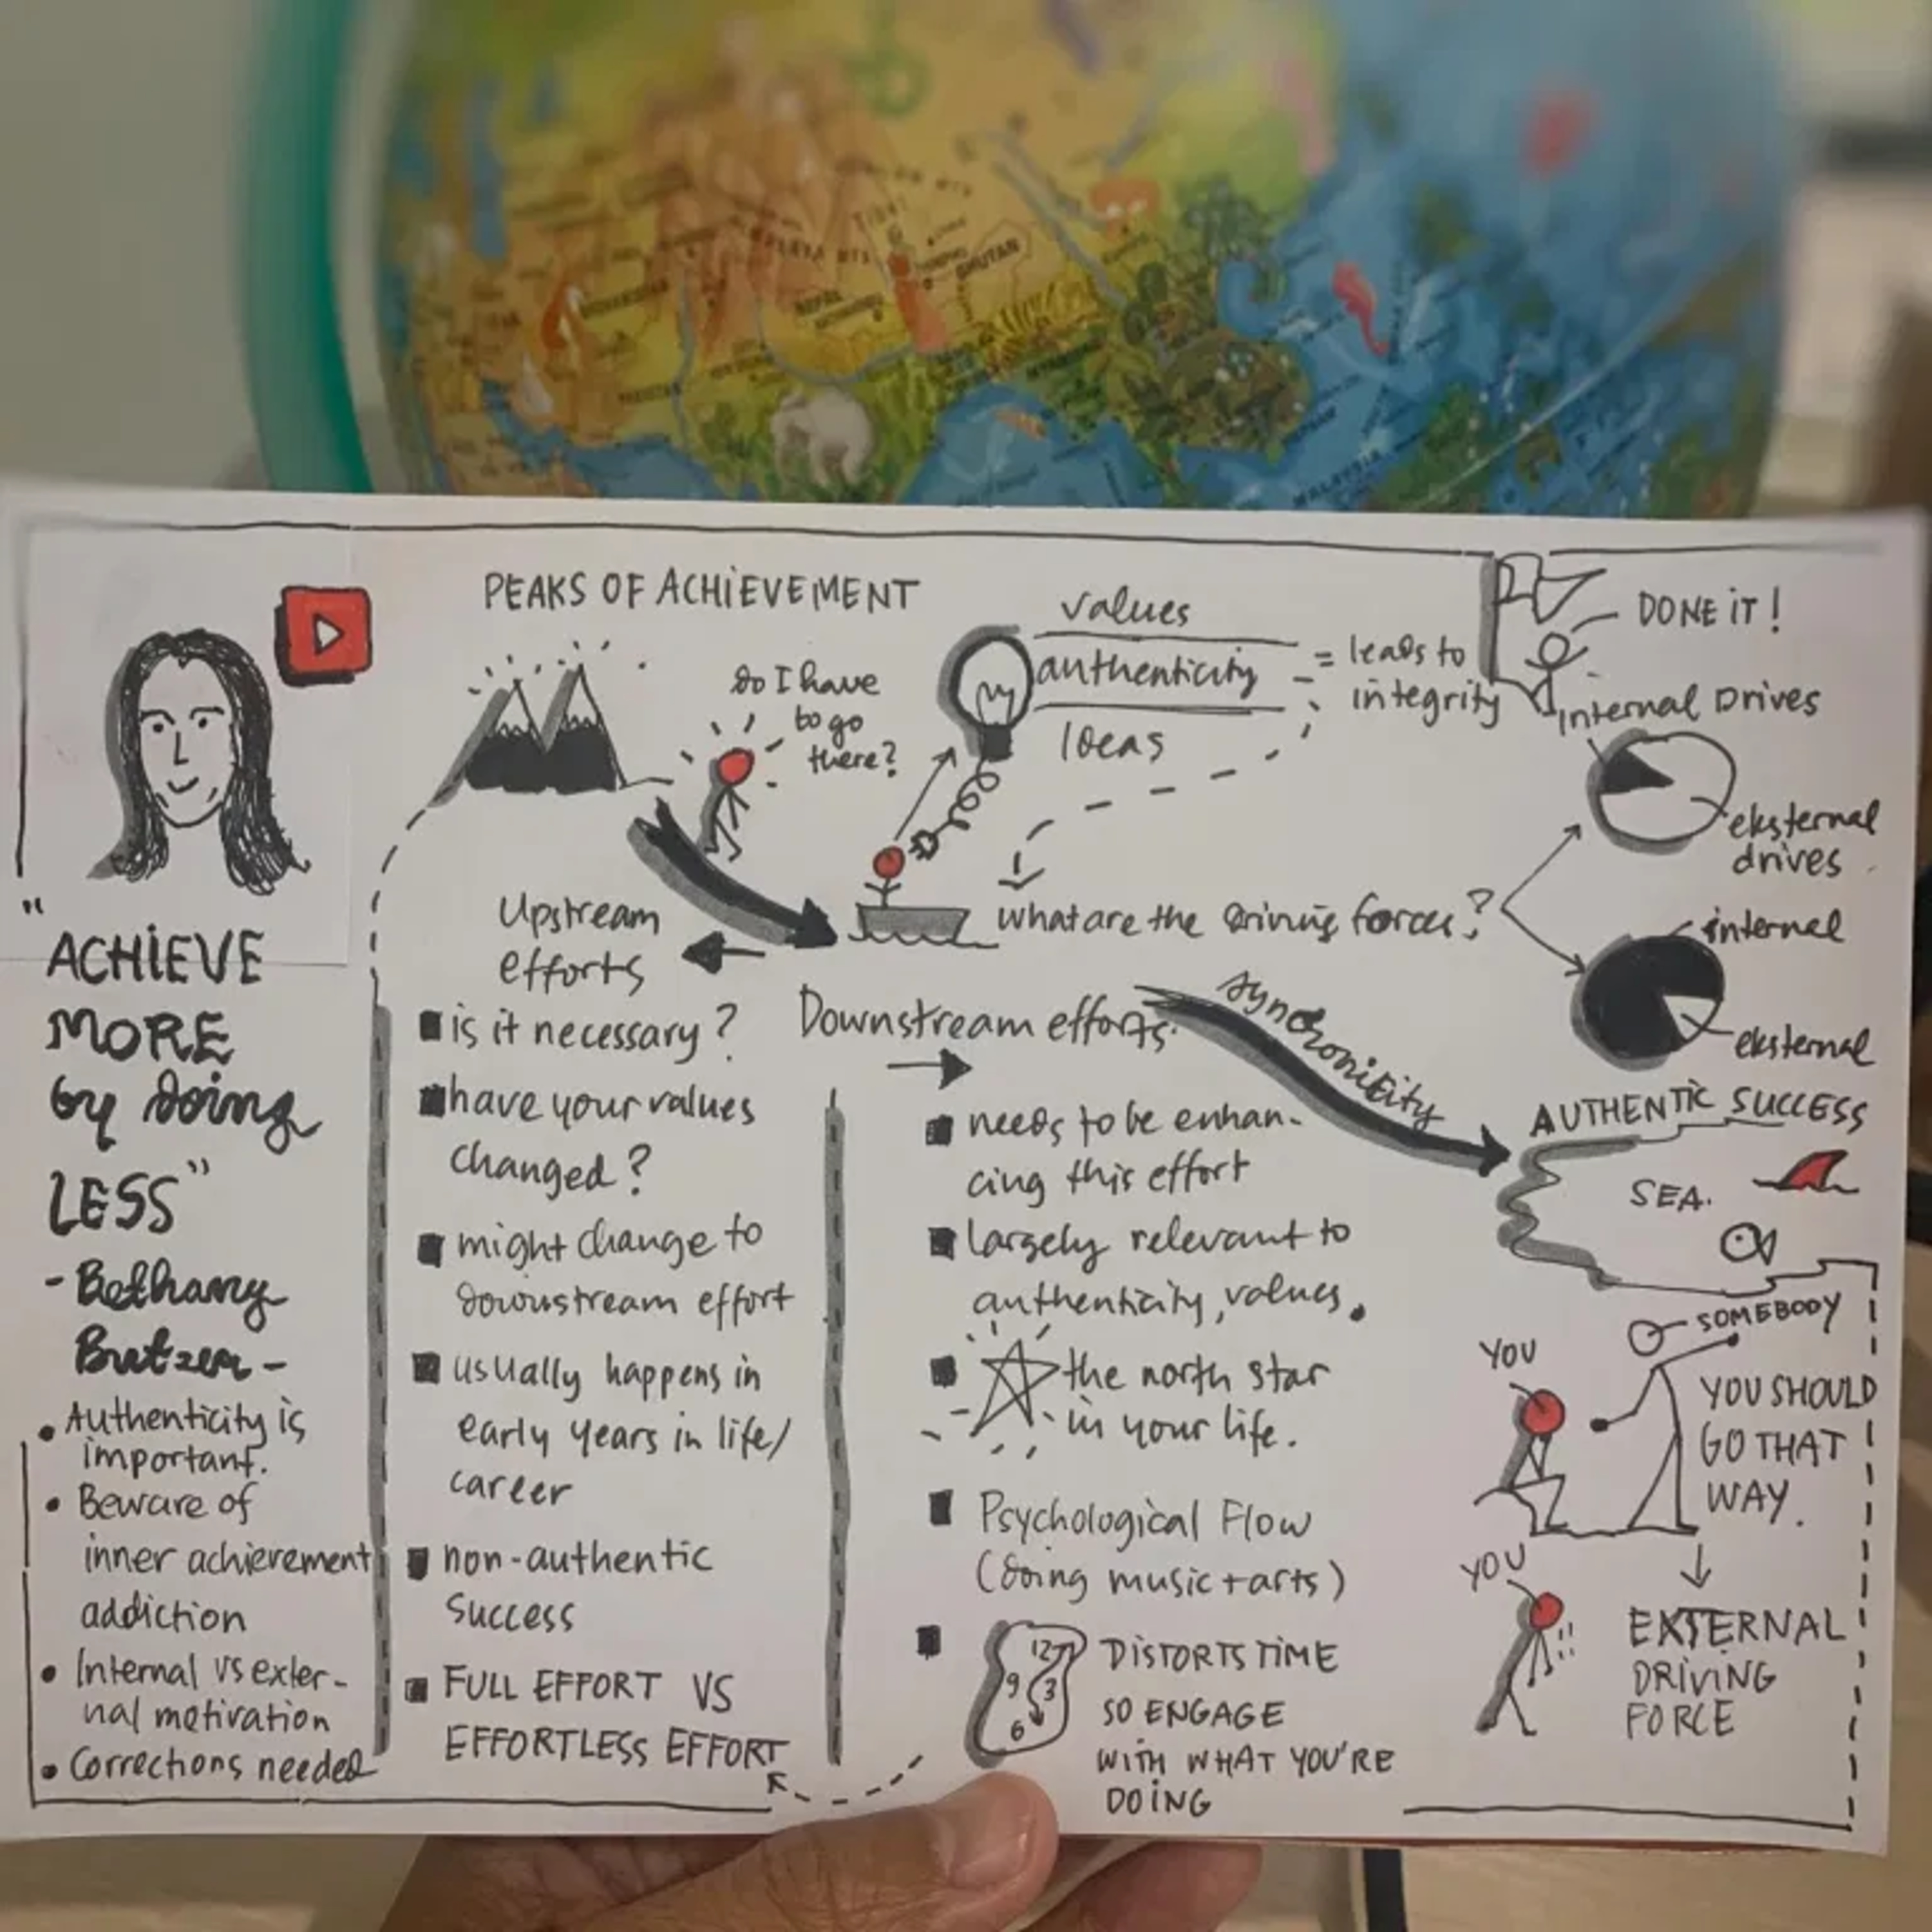 TIBET
BHUTAN
NEPAL
PAKISTAN
MALAYSIA
PEAKS OF ACHIEVEMENT
do I have
to go
there?
values
authenticity
Ideas
= leads to
integrity
DONE IT!
internal Drives
eksternal
drives
"ACHIEVE
MORE
by doing
LESS"
- Bethany
Butzer -
• Authenticity is
important.
• Beware of
inner achievement
addiction
• Internal vs exter-
nal motivation
• Corrections needed
Upstream
efforts
is it necessary?
have your values
changed?
might change to
downstream effort
usually happens in
early years in life/
career
non-authentic
success
FULL EFFORT VS
EFFORTLESS EFFORT
what are the driving forces?
internal
eksternal
Downstream efforts.
synchronicity
needs to be enhan-
cing this effort
largely relevant to
authenticity, values.
the north star
in your life.
Psychological Flow
(doing music + arts)
12
9 3
6
DISTORTS TIME
SO ENGAGE
WITH WHAT YOU'RE
DOING
AUTHENTIC SUCCESS
SEA.
SOMEBODY
YOU
YOU SHOULD
GO THAT
WAY.
YOU
EXTERNAL
DRIVING
FORCE